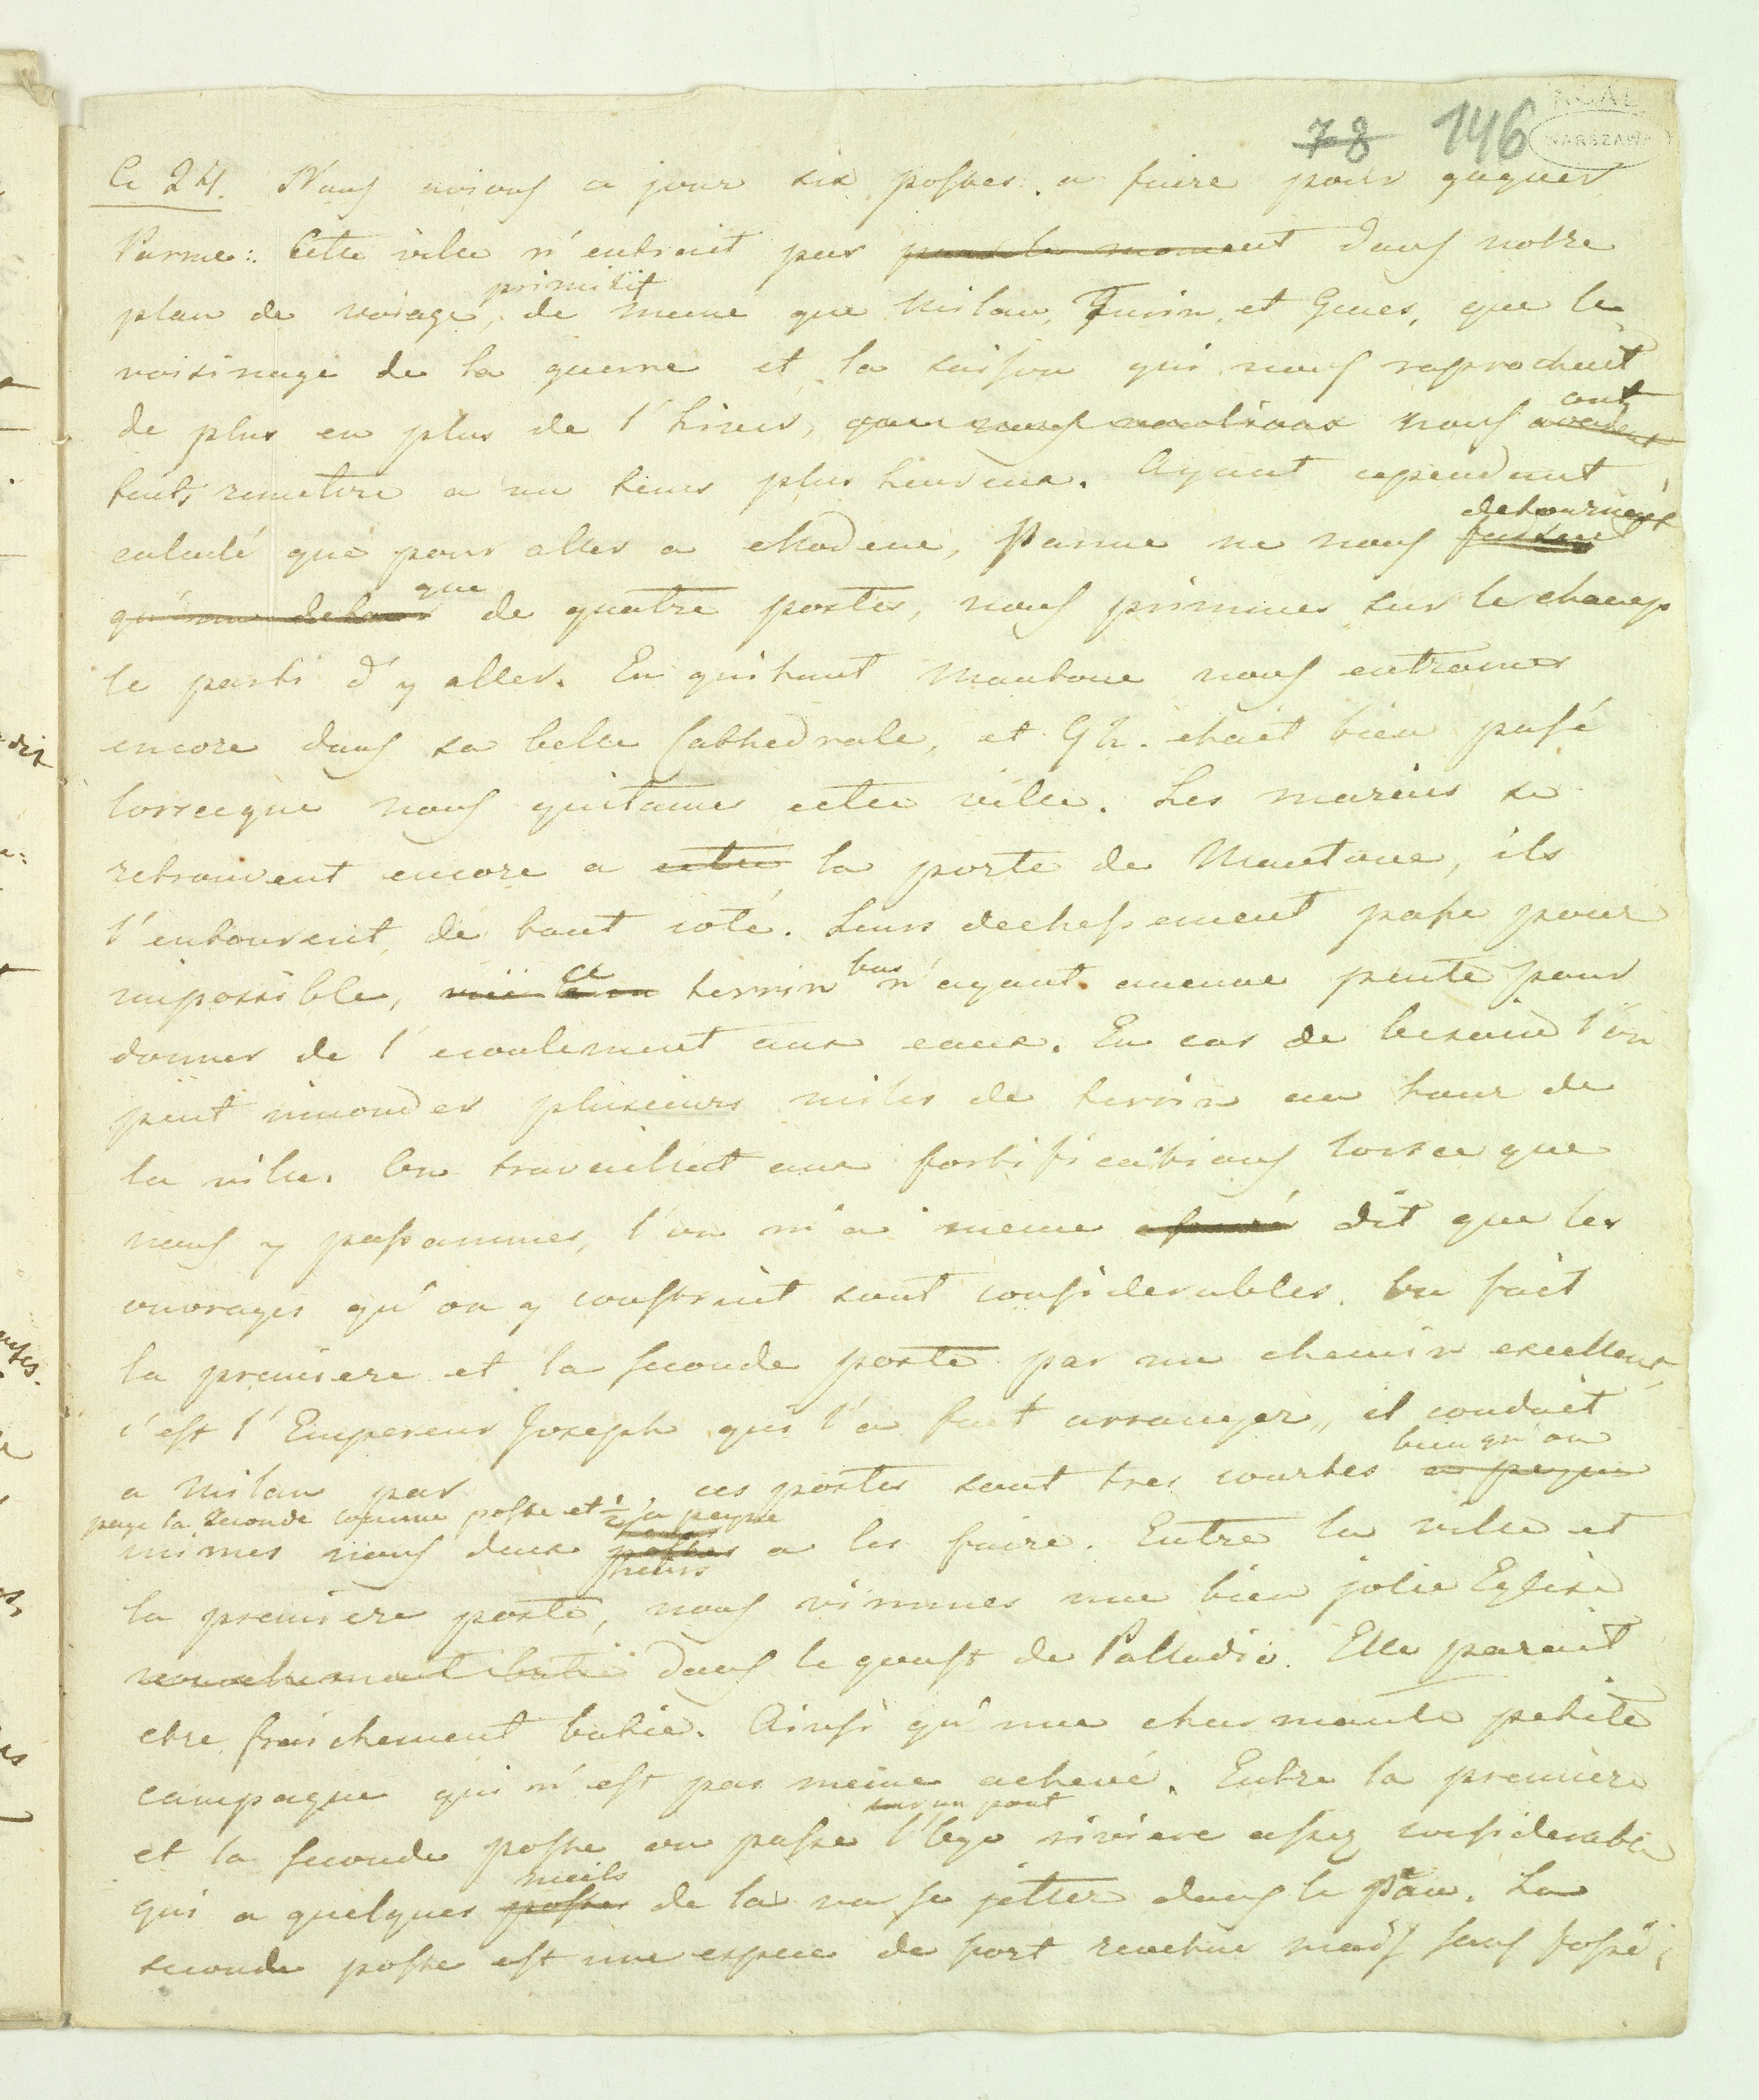 78 146
AGAD WARSZAWA
Ce 24. Nous avions ce jour six postes a faire pour gagner
Parme: Cette ville n'entroit pas pour le moment dans notre
plan de voiage primitif, de meme que Milan, Turin, et Genes, que le
voisinage de la guerre et la saison qui nous raprochait
de plus en plus de l'hiver, nous ont
fait remettre a un tems plus heureux. Ayant cependant
calculé que pour aller a Modene, Parme ne nous detournait
qu'un detour que de quatre postes, nous primmes sur le champ
le parti d'y aller. En quitant Mantoue nous entrames
encore dans sa belle Cathedrale, et 9 h. etait bien passé
lorsceque nous quitames cette ville. Les marais se
retrouvent encore a cette la porte de Mantoue, ils
l'entourent de tout coté. Leurs dechessement passe pour
impossible, ce terrin bas n'ayant aucune pente pour
donner de l'ecoulement aux eaux. En cas de besoin l'on
peut innonder plusieurs miles de terrin au tour de
la ville. On travaillait aux fortifications lorsceque
nous y passammes, l'on m'a meme assuré dit que les
ouvrages qu'on y construit sont considerables. On fait
la premiere et la seconde poste par un chemin excellent,
c'est l'Empereur Joseph qui l'a fait arranger, il conduit
a Milan par ces postes sont tres courtes bien qu'on
paye la seconde comme poste et ½, a peyne
mimes nous deux postes heurs a les faire. Entre la ville et
la premiere poste, nous vimmes une bien jolie Eglise
dans le goust de Palladio. Elle parait
etre fraichement batie. Ainsi qu'une charmante petite
campagne qui n'est pas meme achevé. Entre la premiere
et la seconde poste on passe sur un pont l'Ogo riviere assez considerable
qui a quelques postes meils de la va se jetter dans le Pau. La
seconde poste est une espece de fort revetue mais sans fossé,